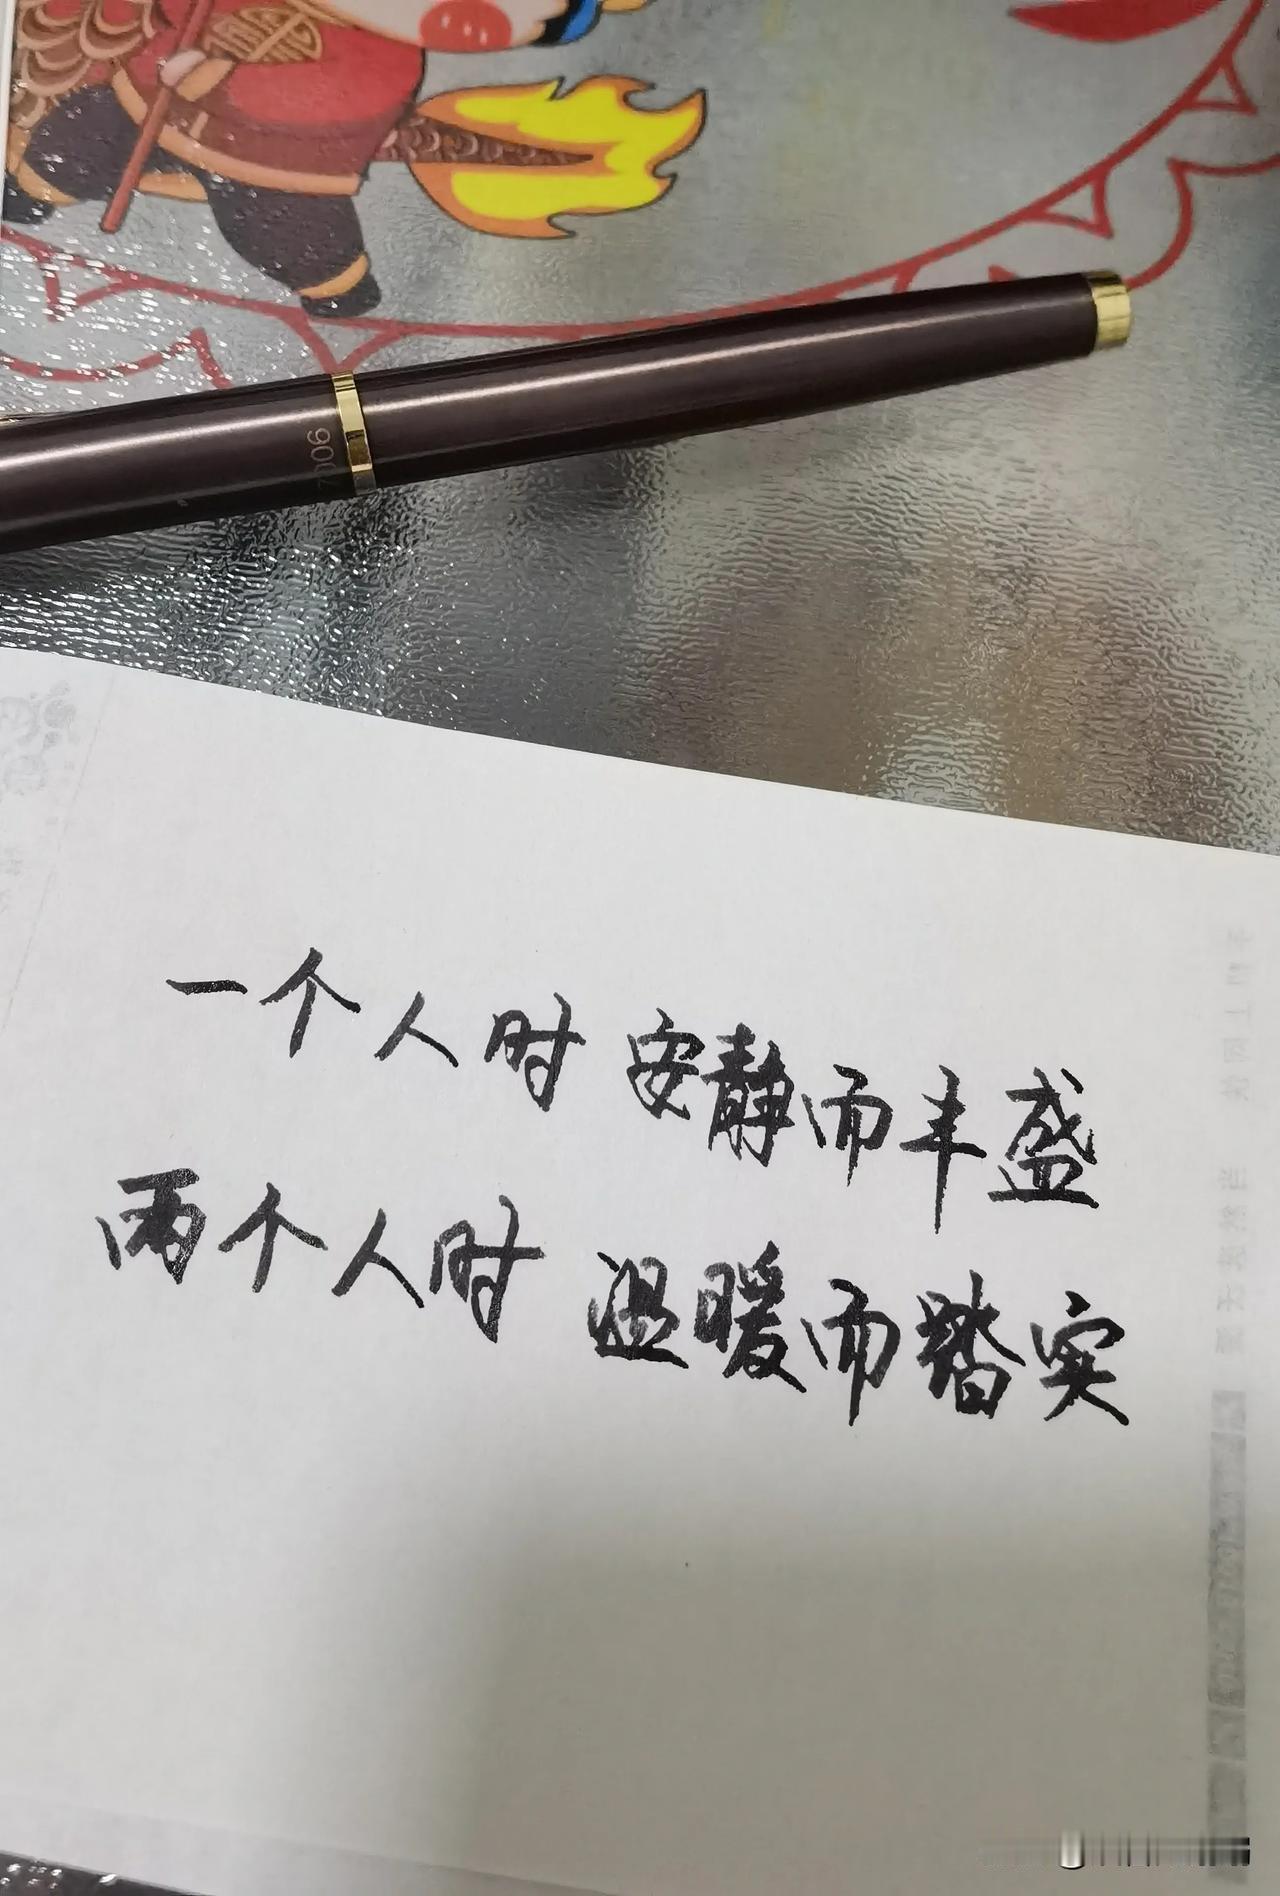 7006
一个人时 安静而丰盛
两个人时 温暖而踏实